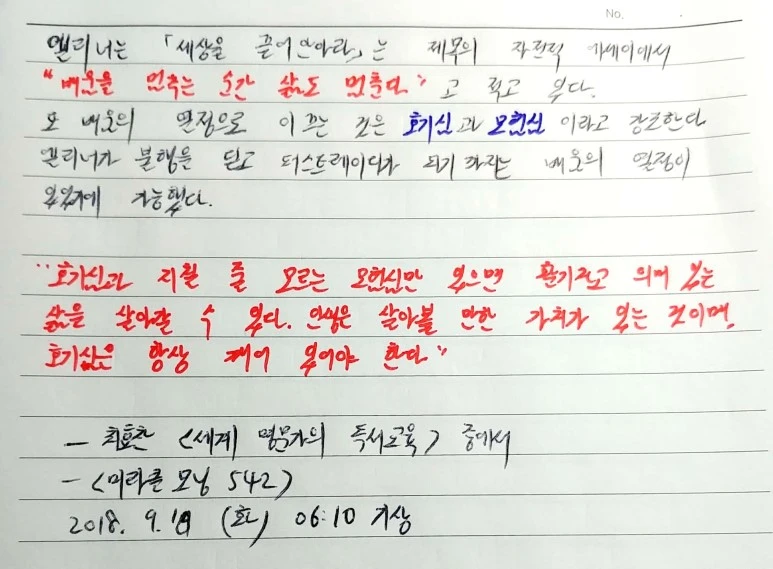 No.
엘리너는 「세상을 끌어안아라」는 제목의 자전적 에세이에서
"배움을 멈추는 순간 삶도 멈춘다."고 적고 있다.
또 배움의 열정으로 이끄는 것은 호기심과 모험심이라고 강조한다.
엘리너가 불행을 딛고 퍼스트레이디가 되기까지는 배움의 열정이
있었기에 가능했다.
"호기심과 지칠 줄 모르는 모험심만 있으면 활기차고 의미 있는
삶을 살아갈 수 있다. 인생은 살아볼 만한 가치가 있는 것이며,
호기심은 항상 깨어 있어야 한다."
- 최효찬 <세계 명문가의 독서교육> 중에서
- <미라클 모닝 542>
2018. 9. (화) 06:10 기상